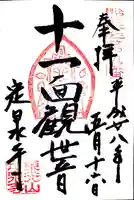 奉拝
平成廿八年
正月十六日
十一面觀世音
定泉寺